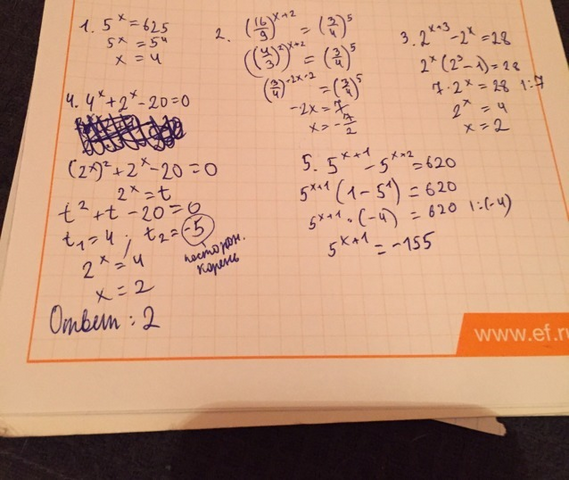 1. 5^x = 625
5^x = 5^4
x = 4
2. (16/9)^x+2 = (3/4)^5
((4/3)^2)^x+2 = (3/4)^5
(3/4)^-2x-2 = (3/4)^5
-2x = 7
x = -7/2
3. 2^x+3 - 2^x = 28
2^x (2^3 - 1) = 28
7 · 2^x = 28 | : 7
2^x = 4
x = 2
4. 4^x + 2^x - 20 = 0
(2^x)^2 + 2^x - 20 = 0
2^x = t
t^2 + t - 20 = 0
t1 = 4 ; t2 = -5
посторон.
корень
2^x = 4
x = 2
Ответ : 2
5. 5^x+1 - 5^x+2 = 620
5^x+1 (1 - 5^1) = 620
5^x+1 · (-4) = 620 | : (-4)
5^x+1 = -155
www.ef.ru